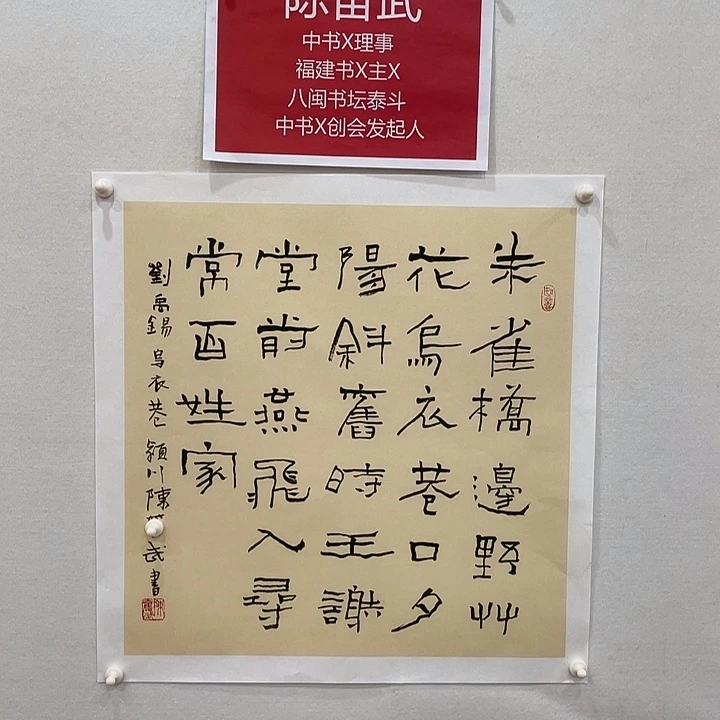 陈奋武
中书X理事
福建书X主X
八闽书坛泰斗
中书X创会发起人
朱雀橋邊野艸
花烏衣巷口夕
陽斜舊時王謝
堂前燕飛入尋
常百姓家
劉禹錫烏衣巷潁川陳奮武書